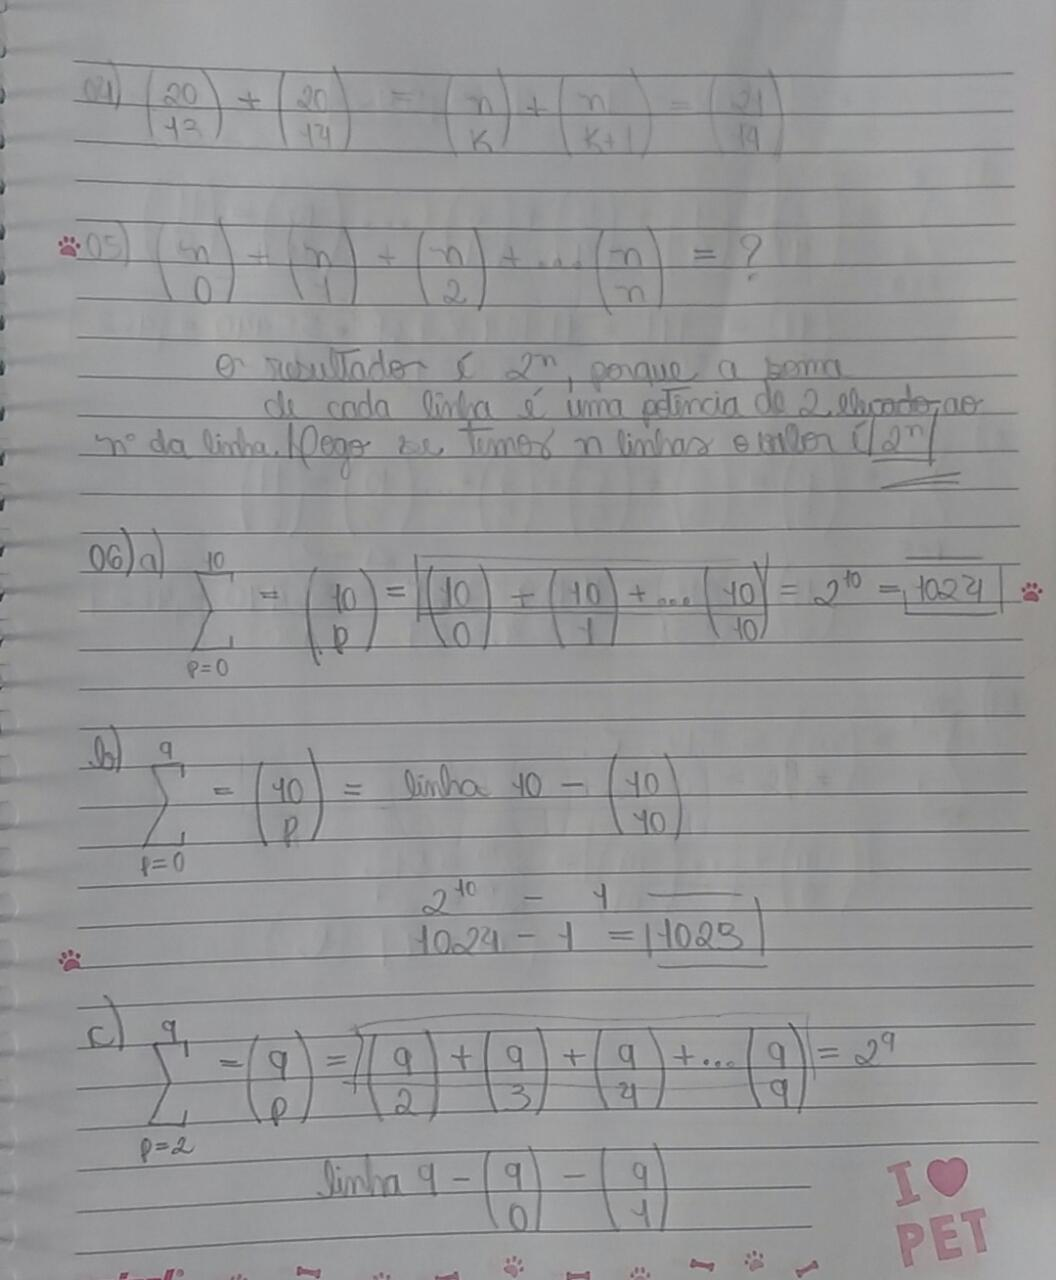 04) (20/13) + (20/14) = (n/k) + (n/k+1) = (21/14)
05) (n/0) + (n/1) + (n/2) + ... (n/n) = ?
O resultado é 2ⁿ, porque a soma
de cada linha é uma potência de 2 elevado, ao
nº da linha. Logo se temos n linhas o valor é 2ⁿ
06) a) 10 ∑ p=0 = (10/p) = (10/0) + (10/1) + ... (10/10) = 2¹⁰ = 1024
b) 9 ∑ p=0 = (10/p) = linha 10 - (10/10)
2¹⁰ - 1
1024 - 1 = 1023
c) 9 ∑ p=2 = (9/p) = (9/2) + (9/3) + (9/4) + ... (9/9) = 2⁹
linha 9 - (9/0) - (9/1)
I ♥
PET